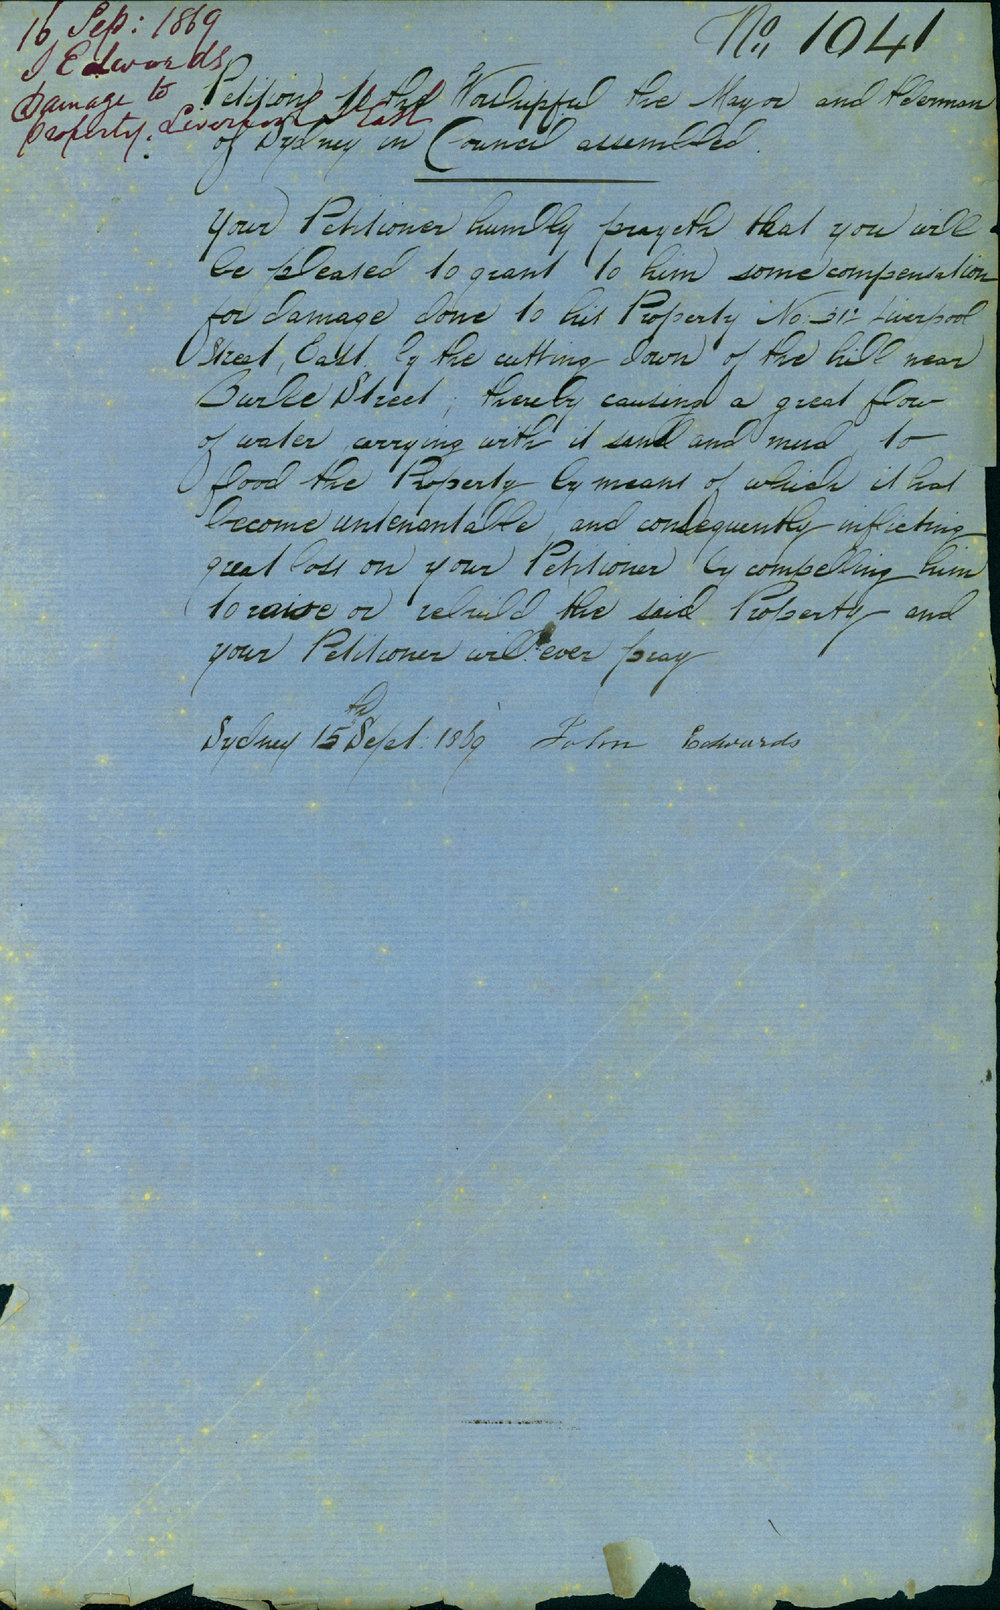 16 Sep: 1869
J Edwards
Damage to
property. Liverpool St East
No. 1041
Petition to the Worshipful the Mayor and Alderman
of Sydney in Council assembled.
Your Petitioner humbly prayeth that you will
be pleased to grant to him some compensation
for damage done to his Property No. Liverpool
Street, East, by the cutting down of the hill near
Burke Street; thereby causing a great flow
of water carrying with it sand and mud to
flood the Property by means of which it has
become untenantable and consequently inflicting
great loss on your Petitioner by compelling him
to raise or rebuild the said Property and
your Petitioner will ever pray
Sydney 15th Sept. 1869 John Edwards